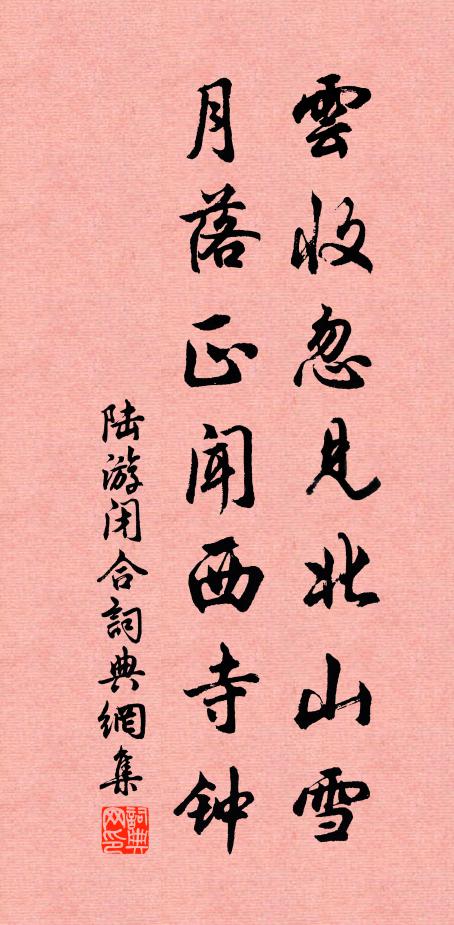 雲收忽見北山雪
月落正闻西寺钟
陆游闭合詞典網集
詞典网印